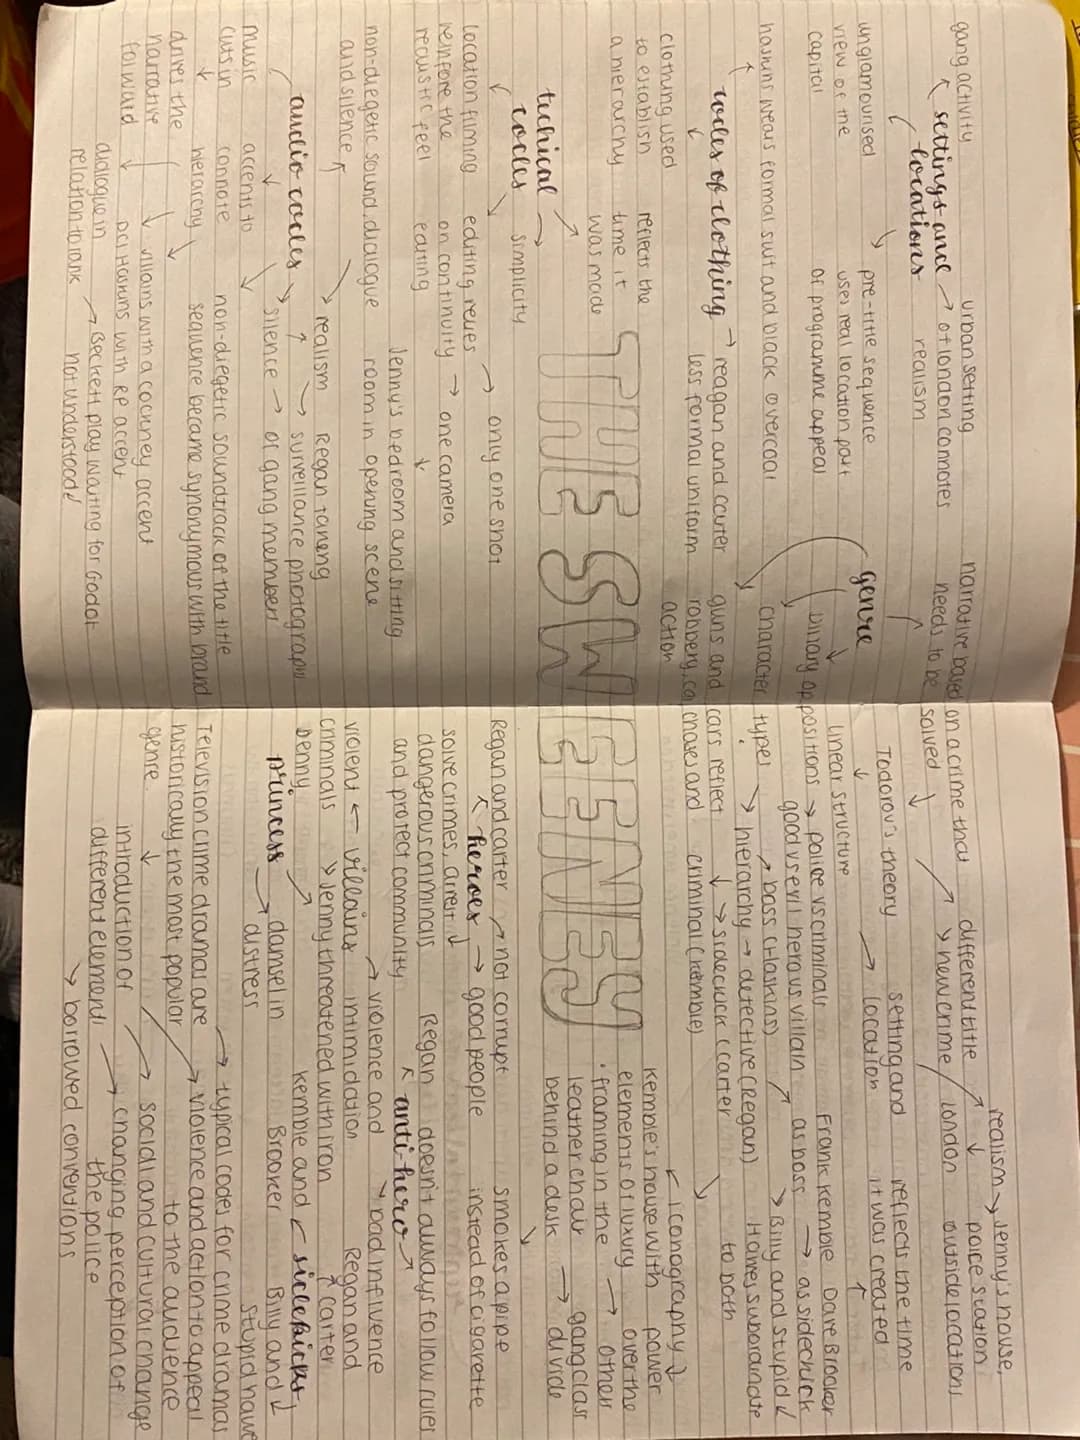 gang activity
settings and
locations
urban setting
of london connotes
realism
unglamourised
view of the
capital
pre-title sequence
uses real location part
of programme appeal
haskins wears formal suit and black overcoat
codes of clothing
clothing used
to establish
a hierarchy
reflects the
time it
was made
reagan and carter
less formal uniform
techical
codes
simplicity
location filming
reinforce the
realistic feel
editing relies
on continuity
editing
only one shot
one camera
non-diegetic sound, dialogue
and silence
Jenny's bedroom and sitting
room in opening scene
audio codes
realism
silence
Regan taking
surveillance photographs
of gang members
music
cuts in
drives the
narrative
forward
accents to
connote
hierarchy
non-diegetic soundtrack of the title
sequence became synonymous with brand
villains with a cockney accent
policemen with RP accent
dialogue in
relation to rank
Beckett play Waiting for Godot
not understood
THE SWEENEY
genre
narrative based on a crime that
needs to be solved
new crime
different title
realism
Jenny's house,
police station
london
outside locations
Todorov's theory
linear structure
location
setting and
reflects the time
it was created
binary oppositions
police vs criminals
good vs evil hero vs villain
Frank Kemble
as boss
Dave Brooker
as sidekick
character types
hierarchy
boss (Haskins)
detective (Regan)
sidecick (carter
criminal (Kemble)
Billy and stupid
Hawes subordinate
to both
guns and cars reflect
robbery, car chases and
action
iconography
Kemble's house with
elements of luxury
framing in the
leather chair
behind a desk
power
over the
other
gang class
divide
smokes a pipe
instead of cigarette
Regan and carter
solve crimes, arrest
dangerous criminals
and protect community
heroes
not corrupt
good people
Regan doesn't always follow rules
anti-hero
bad influence
violent
criminals
villains
violence and
intimidation
Jenny threatened with iron
Regan and
carter
sidekicks
Kemble and
Brooker
Billy and
stupid hawes
Jenny
princess
damsel in
distress
Television crime dramas are
historically the most popular
genre
typical codes for crime dramas
violence and action to appeal
to the audience
introduction of
different elements
social and cultural change
changing perception of
the police
borrowed conventions